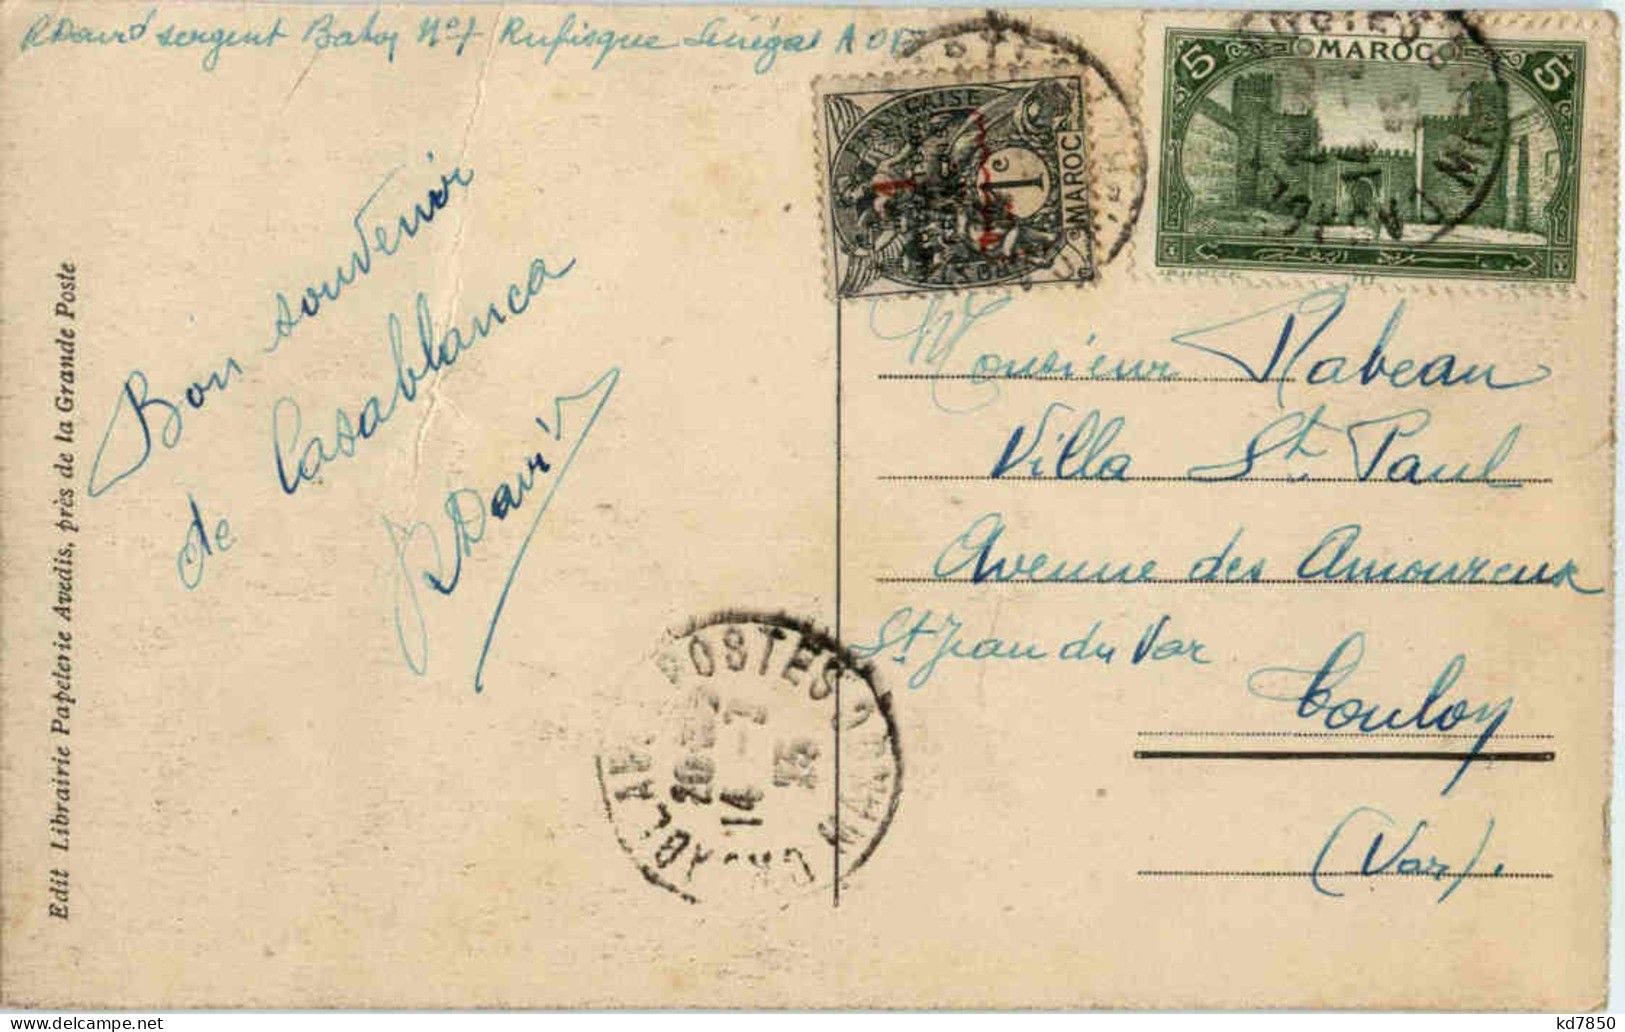 RDavid sergent Baton No 1 Rufisque Sénégal AOF
Bon souvenir
de Casablanca
RDavid
Edit Librairie Papeterie Avedis, près de la Grande Poste
1c
MAROC
5 MAROC 5
Monsieur Rabeau
Villa St Paul
Avenue des Amoureux
St Jean du Var
Toulon
(Var).
POSTES
20
14
MAROC
kd7850